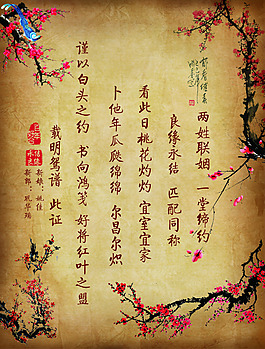 两姓联姻 一堂缔约
良缘永结 匹配同称
看此日桃花灼灼 宜室宜家
卜他年瓜瓞绵绵 尔昌尔炽
谨以白头之约 书向鸿笺 好将红叶之盟
载明鸳谱 此证